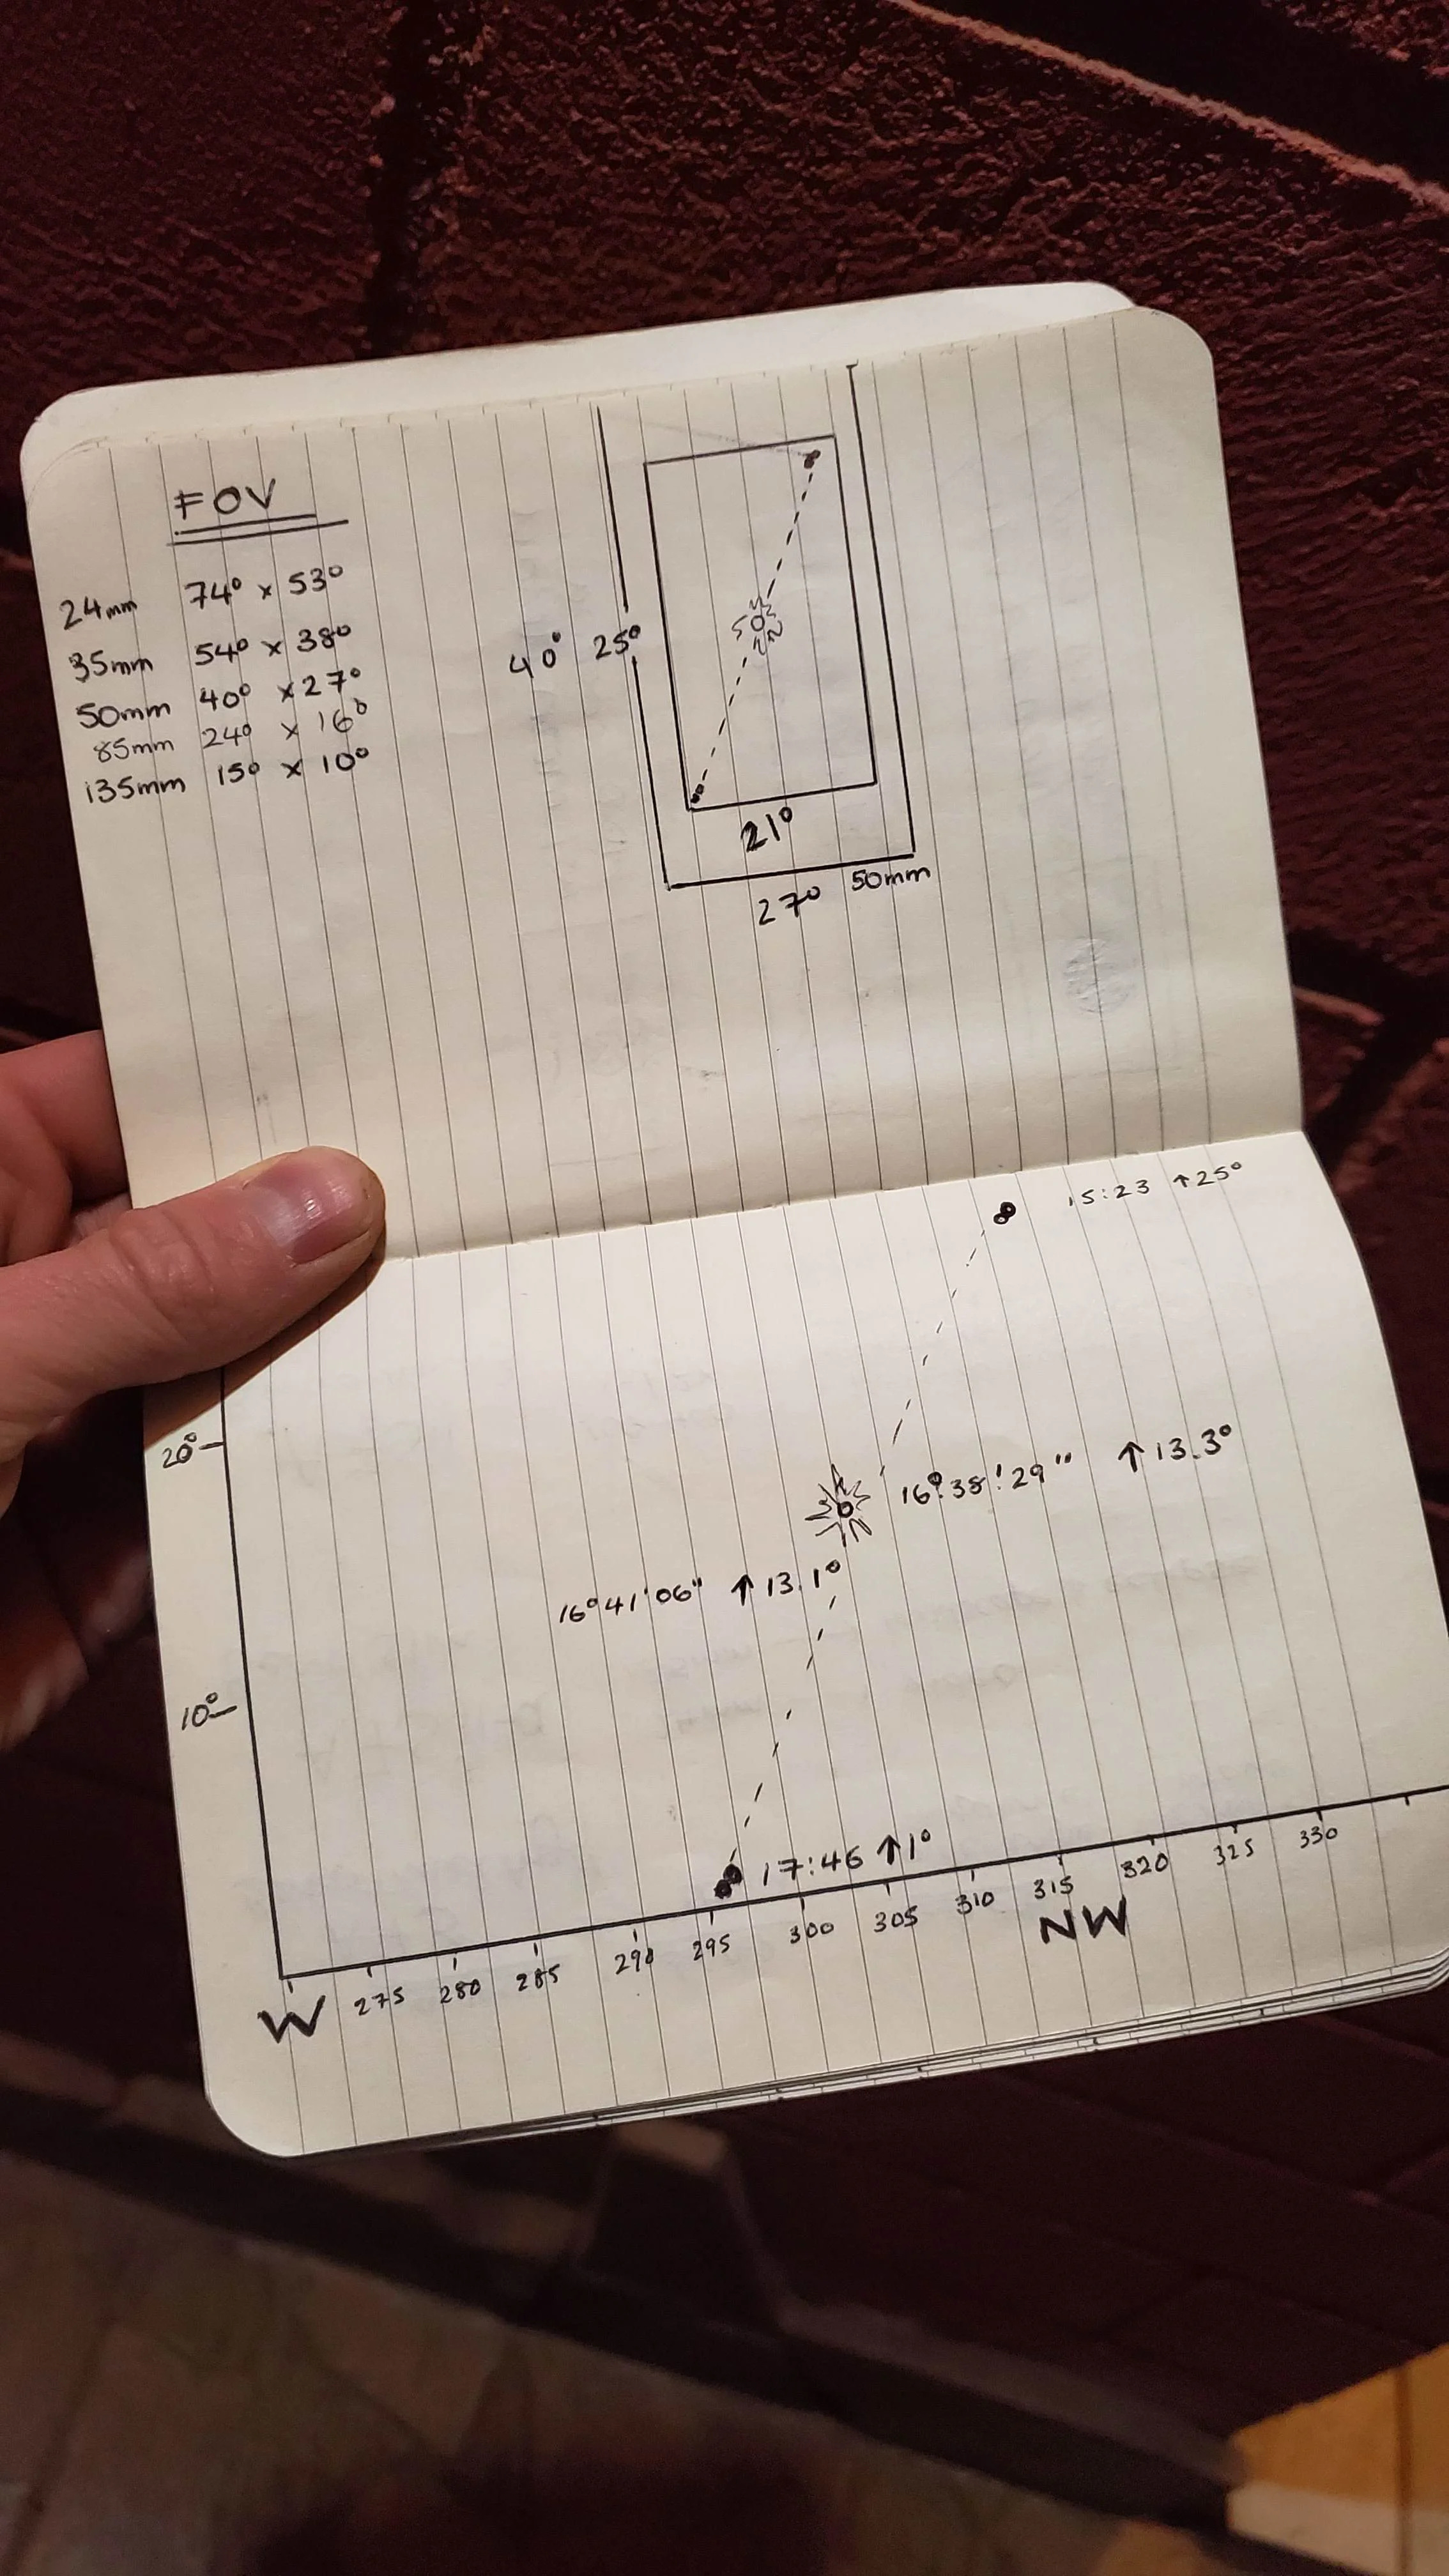 FOV
24mm 74° x 53°
35mm 54° x 38°
50mm 40° x 27°
85mm 24° x 16°
135mm 15° x 10°
40° 25°
21°
27° 50mm
15:23 ↑25°
20°
16°:38':29" ↑13.3°
16°41'06" ↑13.1°
10°
17:46 ↑1°
W 275 280 285 290 295 300 305 310 315 320 325 330
NW